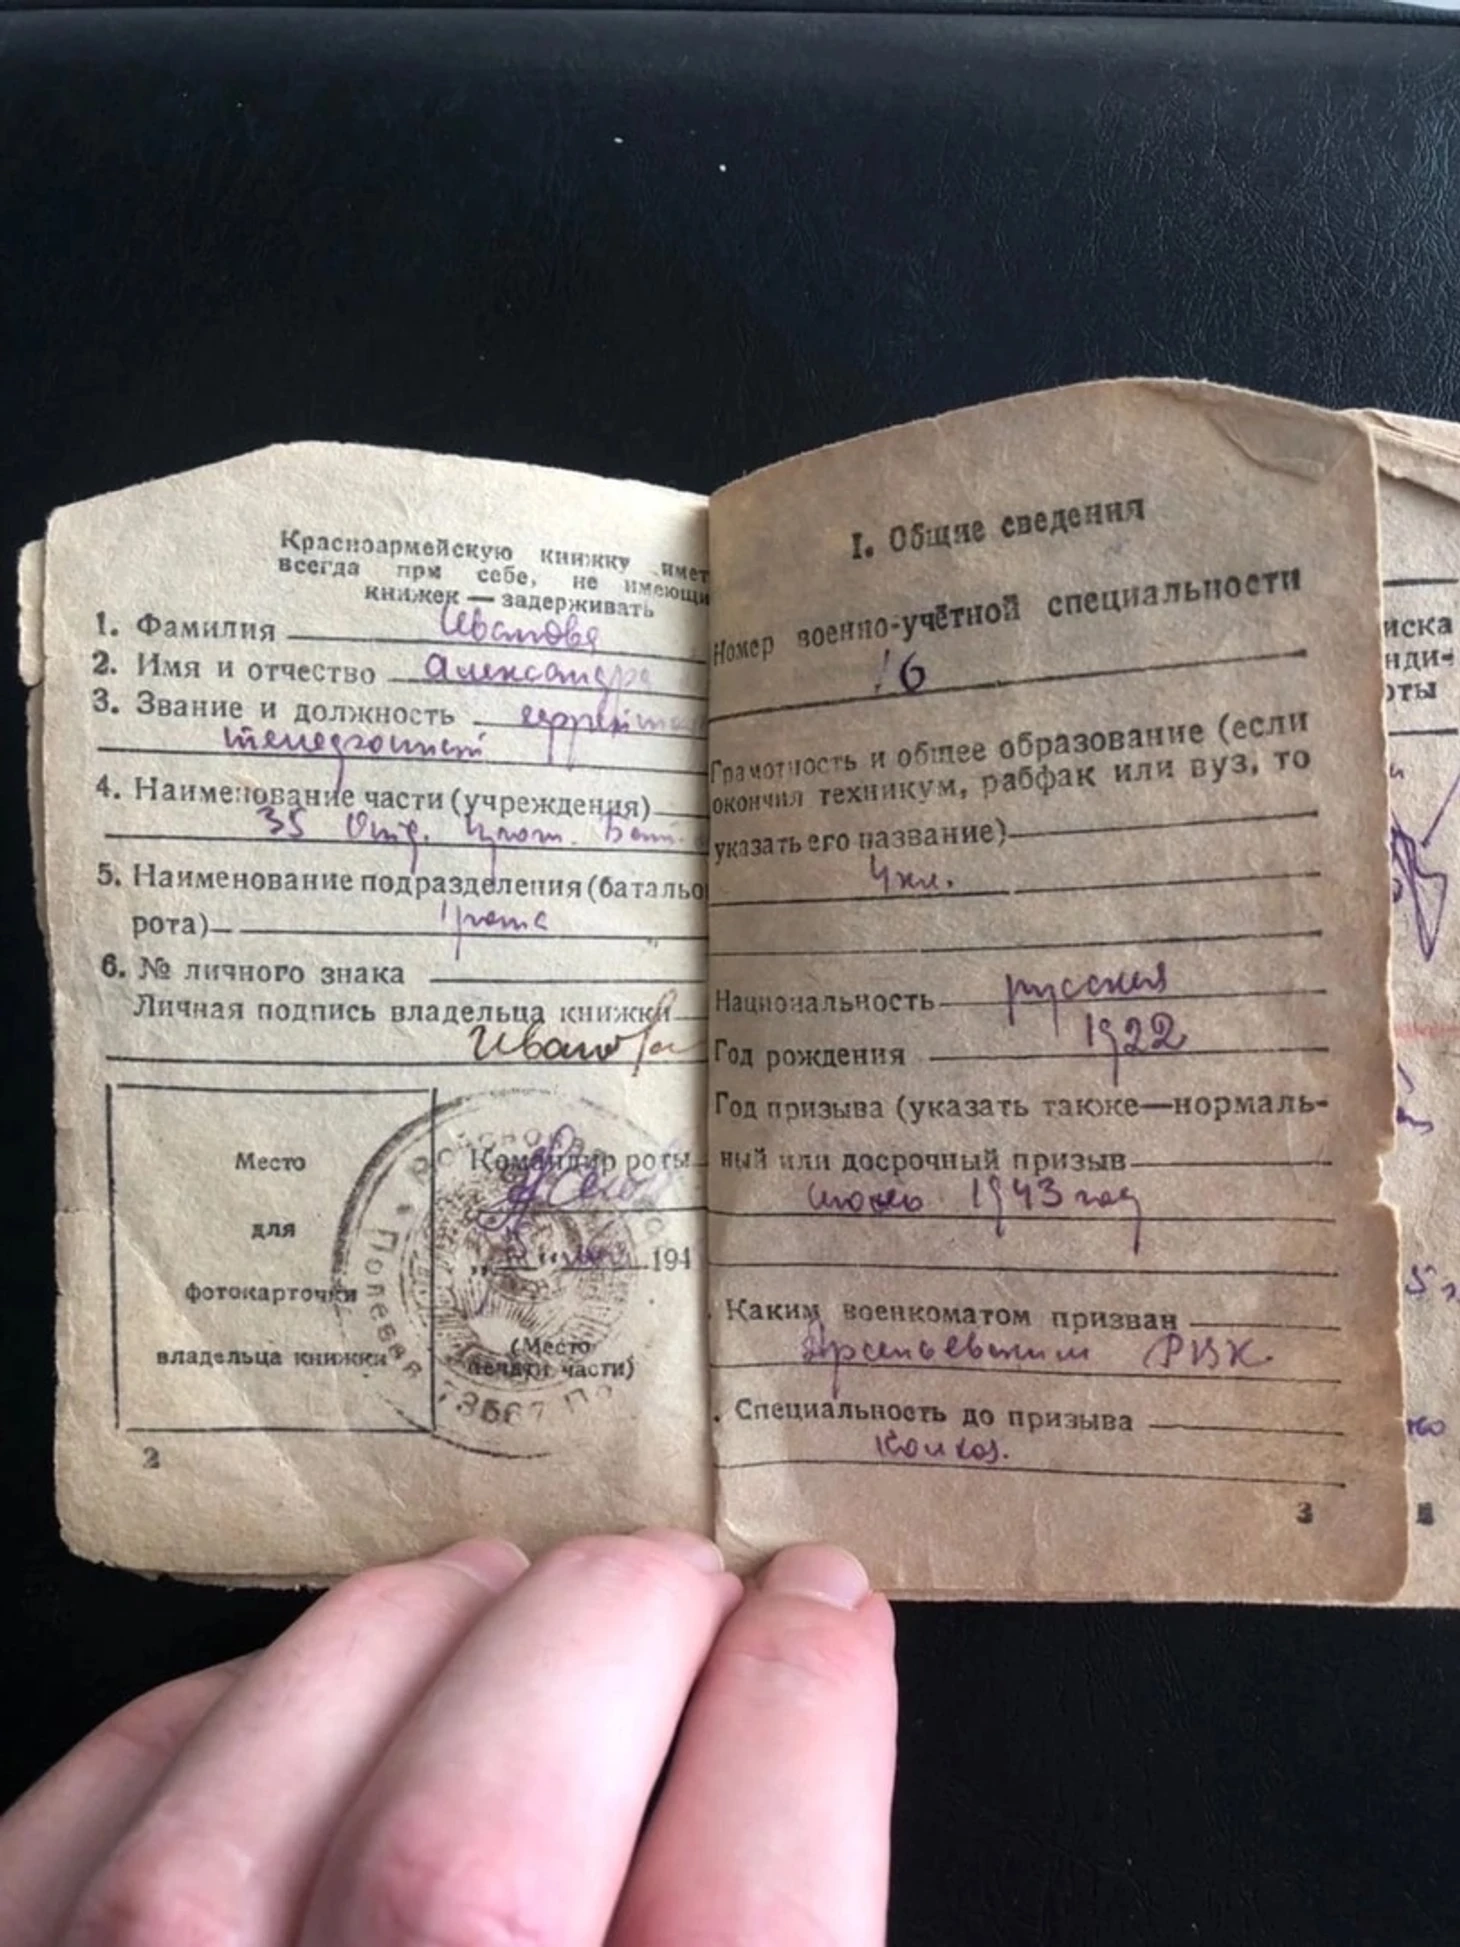 Красноармейскую книжку имет
всегда при себе, не имеющи
книжек — задерживать
1. Фамилия Иванова
2. Имя и отчество Александра
3. Звание и должность
4. Наименование части (учреждения)
35 Отд.
5. Наименование подразделения (батальо
рота) рота
6. № личного знака
Личная подпись владельца книжки
Иванова
Место
для
фотокарточки
владельца книжки
Командир роты
194
(Место
печати части)
Полевая 73567
2
I. Общие сведения
Номер военно-учётной специальности
16
Грамотность и общее образование (если
окончил техникум, рабфак или вуз, то
указать его название)
4 кл.
Национальность русская
Год рождения 1922
Год призыва (указать также—нормаль-
ный или досрочный призыв
1943 год
Каким военкоматом призван
Арсеньевским РВК.
Специальность до призыва
Колхоз.
3
иска
нди-
оты